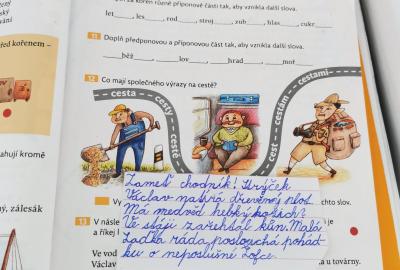 kořen různé příponové části tak, aby vznikla další slova.
let____, les____, rod____, stroj____, zub____, hlas____, cukr____
11 Doplň předponovou a příponovou část tak, aby vznikla další slova.
____běž____, ____lov____, ____hrad____, ____mot____
řed kořenem –
12 Co mají společného výrazy na cestě?
cesta cesty cestě cest cestám cestami
ahují kromě
Vy
chto slov.
Zameť chodník! Strýček
Václav natírá dřevěný plot.
Má medvěd hebký kožich?
Ve stáji zařehtal kůň. Malá
Laďka ráda poslouchá pohád-
ku o neposlušné Žofce.
ný, zálesák
13 V násle
a říkej
Ve vod
Václav
u továrny.